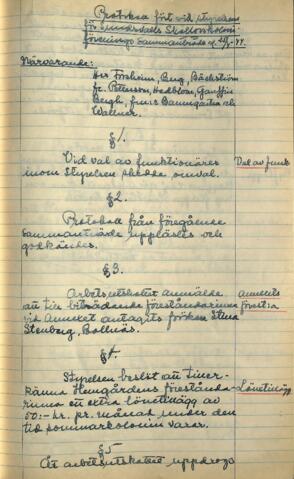 Protokoll fört vid styrelsens
för Sundsvalls Skollovskoloni-
förenings sammanträde d. 
Närvarande:
Hrr Forsheim, Berg, Bäckström
fr. Petersson, Hedblom, Gauffin
Bergh, fru Baumgarten och
Wallner.
§1.
Vid val av funktionärer Val av funk.
inom styrelsen skedde omval.
§2.
Protokoll från föregående
sammanträde upplästes och
godkändes.
§3.
Arbetsutskottet anmälde Annexets
att till biträdande föreståndarinna förest:a
vid Annexet antagits fröken Stina
Stenberg, Bollnäs.
§4.
Styrelsen beslöt att tiller-
känna Hemgårdens förestånda- Lönetillägg
rinna en extra lönetillägg av
50:- kr. pr. månad under den
tid sommarkolonin varar.
§5
Åt arbetsutskottet uppdrogs